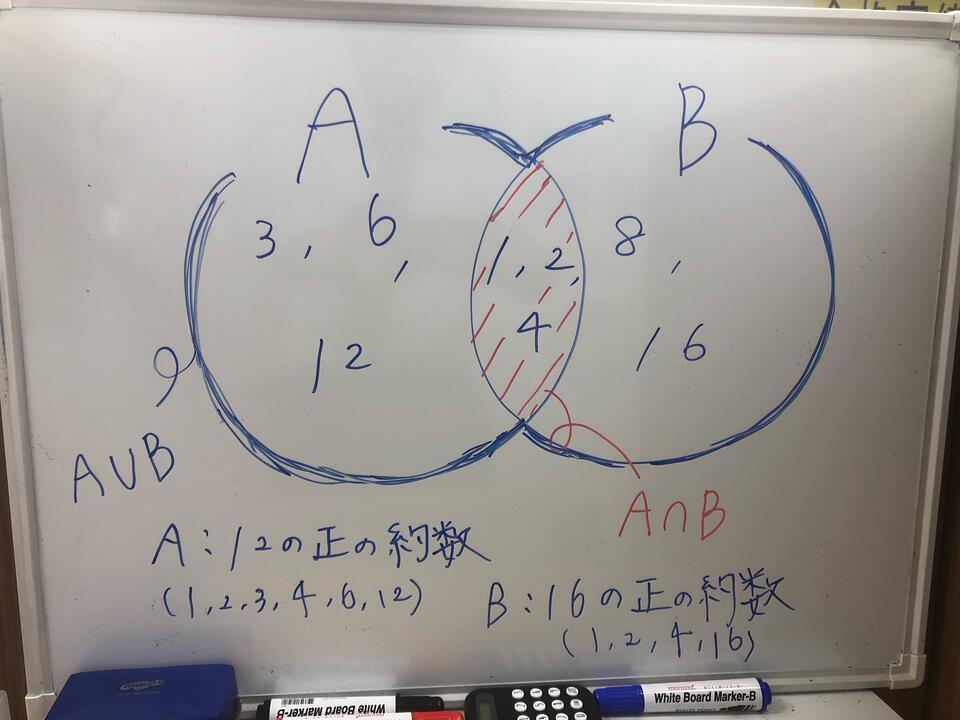 A
B
3, 6,
1, 2,
8,
12
4
16
A∪B
A∩B
A:12の正の約数
(1,2,3,4,6,12)
B:16の正の約数
(1,2,4,16)
White Board Marker-B
White Board Marker-B